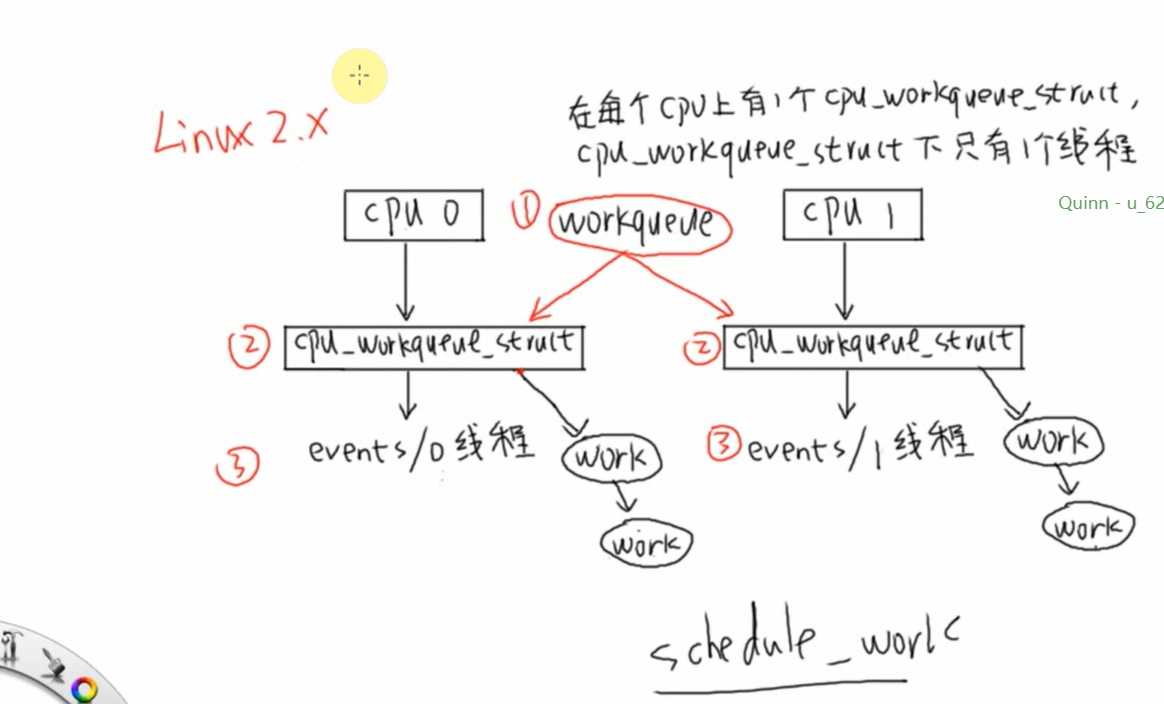 Linux 2.x
在每个CPU上有1个cpu_workqueue_struct,
cpu_workqueue_struct下只有1个线程
Quinn - u_62
cpu 0
① workqueue
cpu 1
② cpu_workqueue_struct
② cpu_workqueue_struct
③ events/0线程
work
③ events/1线程
work
work
work
schedule_work